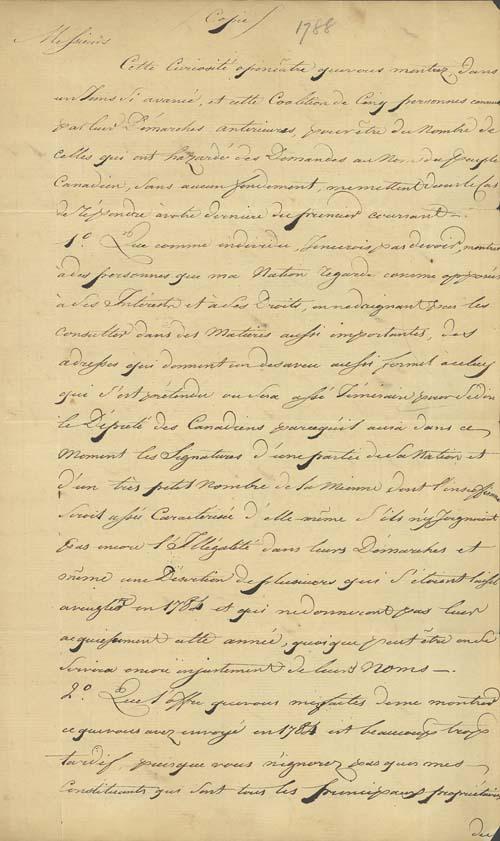 Copie
1788
Messieurs
Cette Curiosité opiniâtre que vous montrez, dans
un Tems si avancé, et cette Coalition de Cinq personnes connues
par leur Démarches anterieures, pour être du Nombre de
celles qui ont hazardé des Demandes au Nom du peuple
Canadien, sans aucun fondement, me mettent dans le Cas
de répondre à votre derniere du premier courant —.
1.º Que comme individu, je ne crois pas devoir, montrer
à des personnes que ma Nation regarde comme opposées
à ses Intérêts et à ses Droits, en ne daignant pas les
consulter dans des Matieres aussi importantes, des
adresses qui donnent un desaveu aussi formel a celuy
qui s'est prétendu ou sera assé Témeraire pour se dire
le Député des Canadiens parcequ'il aura dans ce
Moment les Signatures d'une partie de sa Nation et
d'un très petit Nombre de la Mienne dont
seroit assés Caracterisée d'elle-même s'ils n'y Joignoient
pas encore l'Illégalité dans leurs Démarches et
même une Désertion de plusieurs qui s'étoient laissé
aveugler en 1784 et qui ne donneront pas leur
acquiessement cette année, quoique peut être on se
servira encore injustement de leurs Noms —.
2.º Que l'offre que vous me faites de me montrer
ce que vous avez envoyé en 1784 est beaucoup trop
tardif puisque vous n'ignorez pas que mes
Constituants qui sont tous les principaux propriétaires
des